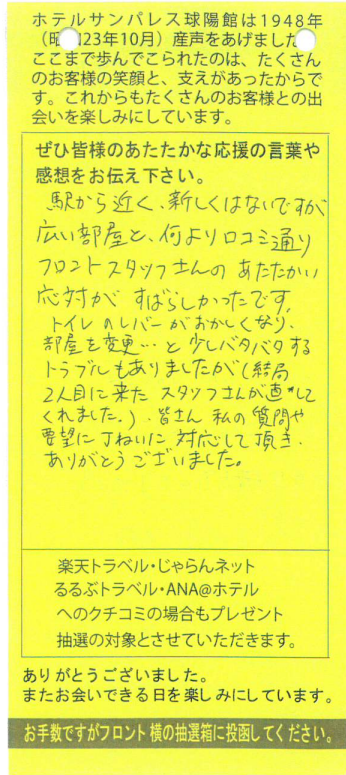 ホテルサンパレス球陽館は1948年
（昭和23年10月）産声をあげました。
ここまで歩んでこられたのは、たくさん
のお客様の笑顔と、支えがあったからで
す。これからもたくさんのお客様との出
会いを楽しみにしています。
ぜひ皆様のあたたかな応援の言葉や
感想をお伝え下さい。
駅から近く、新しくはないですが
広い部屋と、何より口コミ通り
フロントスタッフさんの あたたかい
応対が すばらしかったです。
トイレのレバーがおかしくなり、
部屋を変更…と少しバタバタする
トラブルもありましたが（結局
2人目に来た スタッフさんが直して
くれました。）、皆さん 私の質問や
要望に丁ねいに 対応して頂き、
ありがとうございました。
楽天トラベル・じゃらんネット
るるぶトラベル・ANA@ホテル
へのクチコミの場合もプレゼント
抽選の対象とさせていただきます。
ありがとうございました。
またお会いできる日を楽しみにしています。
お手数ですがフロント横の抽選箱に投函してください。